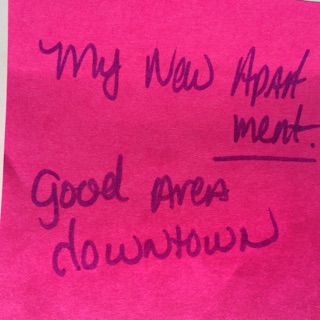 My New Apart
ment.
Good Area
downtown